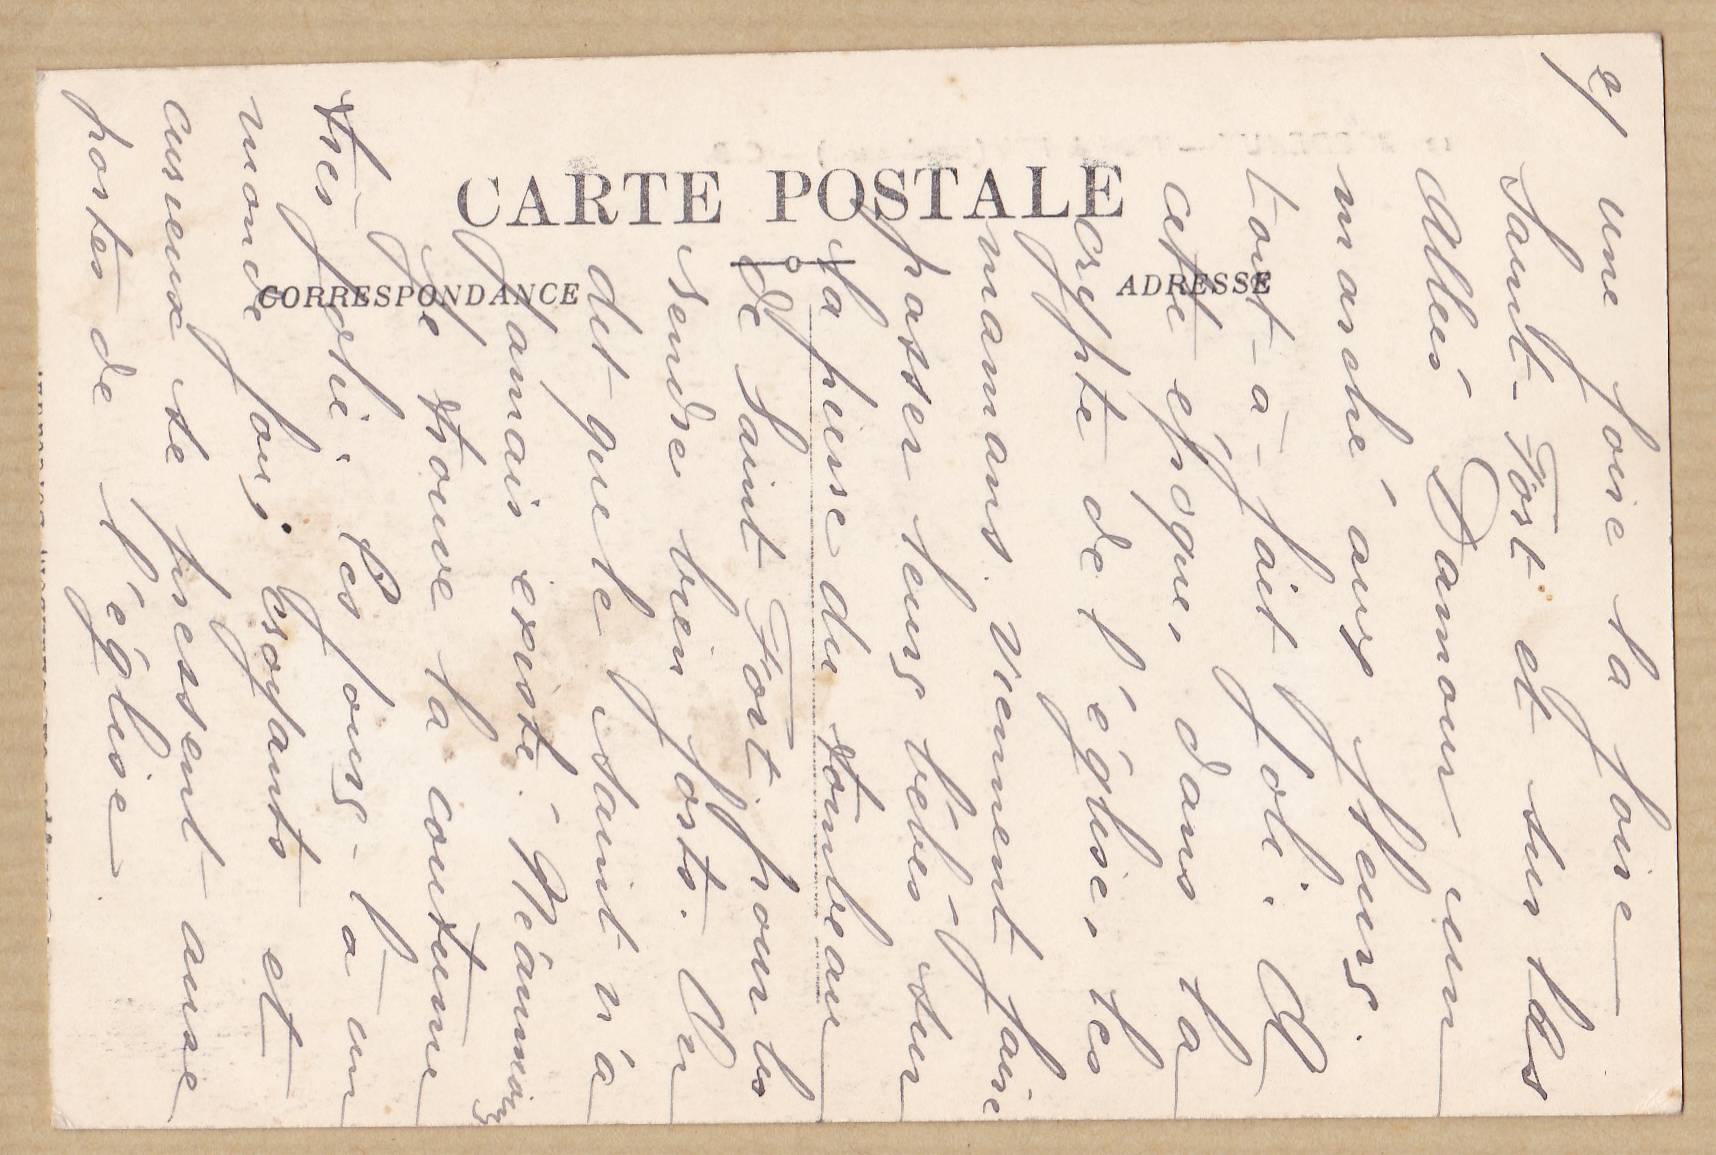 CARTE POSTALE
CORRESPONDANCE
ADRESSE
2/
une fois la foire
Saint-Fort et sur les
Allées Damour un
marché aux fleurs.
tout-à-fait joli. A
cette époque, dans la
crypte de l'église, les
mamans viennent faire
passer leurs bébés sur
la pierre du tombeau
de Saint Fort pour les
rendre bien forts. On
dit que le saint n'a
jamais existé. Néanmoins
je trouve la coutume
très jolie. Ces jours-là un
monde fou, croyants et
curieux se pressent aux
portes de l'église.